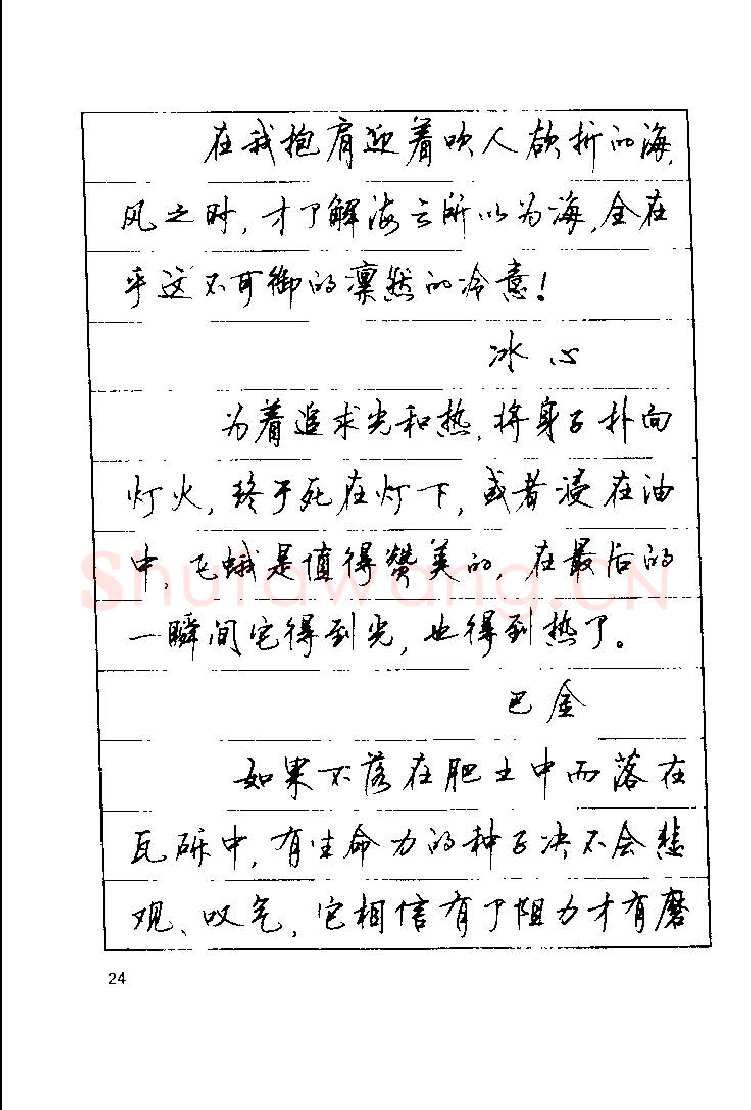 在我抱肩迎着吹人欲折的海
风之时,才了解海之所以为海,全在
乎这不可御的凛然的冷意!
冰心
为着追求光和热,将身子扑向
灯火,终于死在灯下,或者浸在油
中,飞蛾是值得赞美的,在最后的
一瞬间它得到光,也得到热了。
巴金
如果不落在肥土中而落在
瓦砾中,有生命力的种子决不会悲
观、叹气,它相信有了阻力才有磨
24
Shufawang.CN